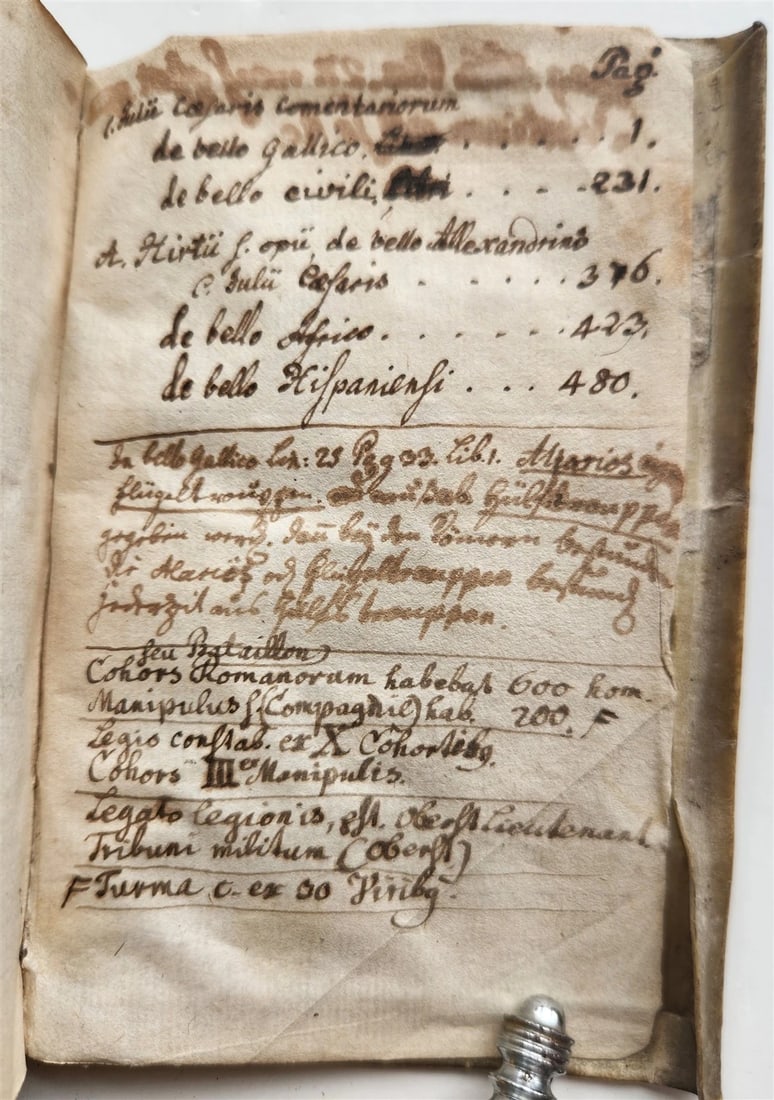 Pag.
C. Julii Cæsaris Comentariorum
de bello Gallico. . . . . . . 1.
de bello civili, libri . . . . 231.
A. Hirtii s. opii de bello Allexandrino
C. Julii Cæsaris . . . . . . 376.
de bello Africo. . . . . . . 423.
de bello Hispaniensi . . . 480.
De bello Gallico Lin: 25 Pag 33. Lib. 1. Alarios
flügeltrouppen. Hülfstrouppen
gegeben werd. dan̄ beÿ den Römern bestunden
die Alarios od Flügeltrouppen bestund
jederzeit aus Hülfs trouppen.
seu Bataillon
Cohors Romanorum habebat 600 hom.
Manipulus s. (Compagnie) hab. 200. F
Legio constab. ex X Cohortibg.
Cohors III ex Manipulis.
Legato legionis, est. Oberst Lieutenant
Tribuni militum (Oberst)
F Turma c. ex 30 Viribg.